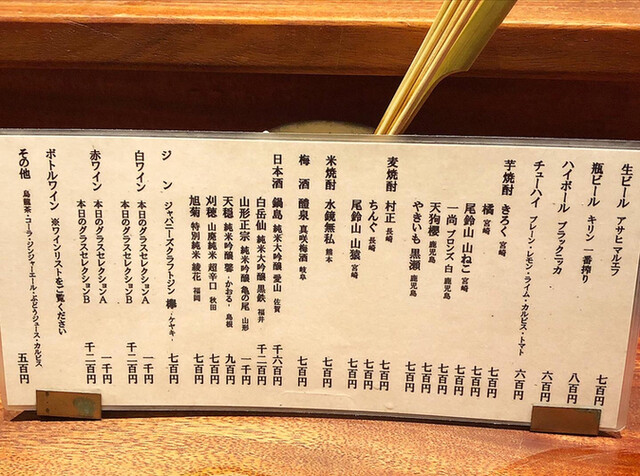 生ビール アサヒ マルエフ 七百円
瓶ビール キリン 一番搾り 八百円
ハイボール ブラックニッカ 六百円
チューハイ プレーン・レモン・ライム・カルピス・トマト 六百円
芋焼酎 きろく 宮崎 七百円
橘 宮崎 七百円
尾鈴山 山ねこ 宮崎 七百円
一尚 ブロンズ 白 鹿児島 七百円
天狗櫻 鹿児島 七百円
やきいも 黒瀬 鹿児島 七百円
麦焼酎 村正 長崎 七百円
ちんぐ 長崎 七百円
尾鈴山 山猿 宮崎 七百円
米焼酎 水鏡無私 熊本 七百円
梅酒 醴泉 真咲梅酒 岐阜 七百円
日本酒 鍋島 純米大吟醸 愛山 佐賀 千六百円
白岳仙 純米大吟醸 黒鉄 福井 千二百円
山形正宗 純米吟醸 亀の尾 山形 一千円
天穏 純米吟醸 馨 -かおる- 島根 九百円
刈穂 山廃純米 超辛口 秋田 七百円
旭菊 特別純米 綾花 福岡 七百円
ジン ジャパニーズクラフトジン 欅 -ケヤキ- 七百円
白ワイン 本日のグラスセレクションA 一千円
本日のグラスセレクションB 千二百円
赤ワイン 本日のグラスセレクションA 一千円
本日のグラスセレクションB 千二百円
ボトルワイン ※ワインリストをご覧ください
その他 烏龍茶・コーラ・ジンジャーエール・ぶどうジュース・カルピス 五百円